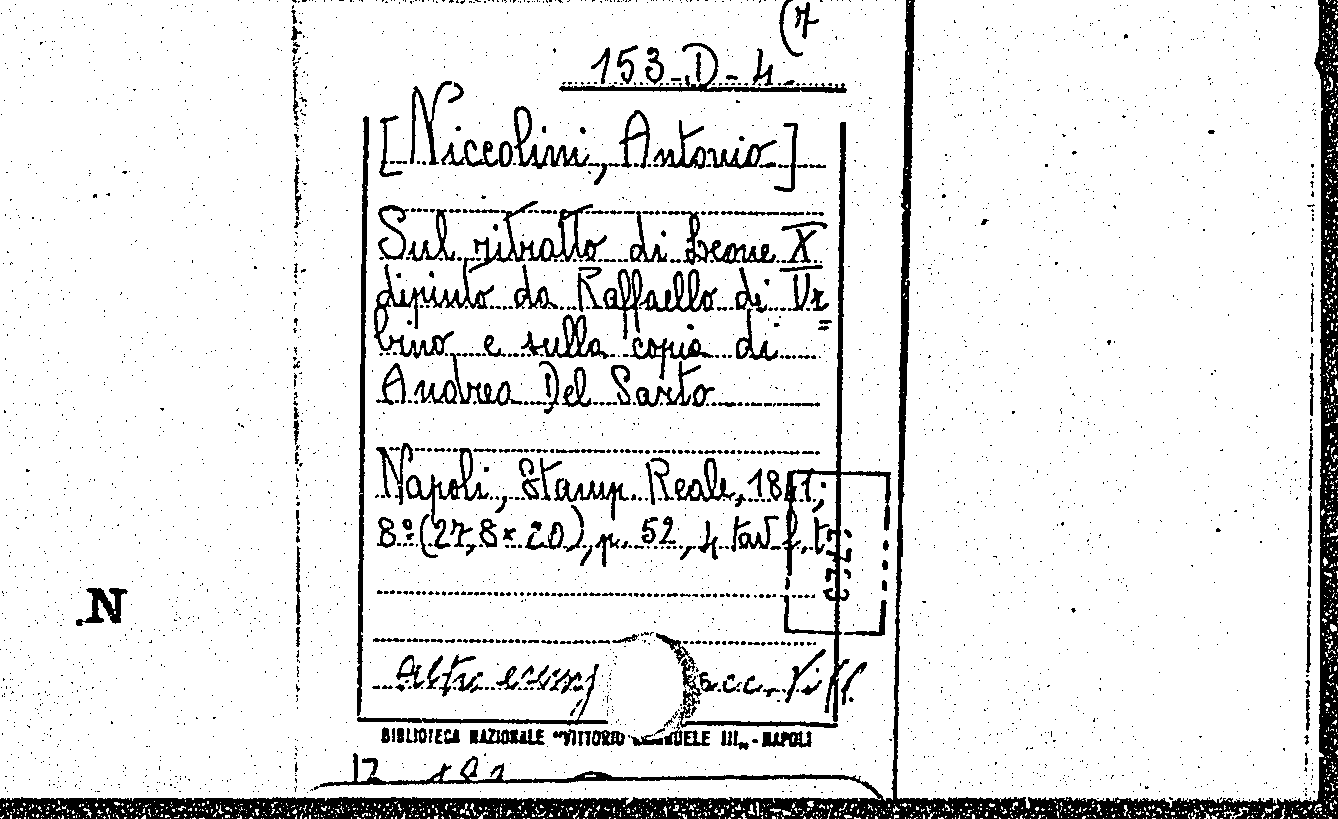 (7
153-D-4
[Niccolini, Antonio]
Sul ritratto di Leone X
dipinto da Raffaello di Ur=
bino e sulla copia di
Andrea Del Sarto
Napoli, Stamp. Reale, 1841;
8º (27,8 x 20), p. 52, 4 tav. f. t.
.N
Altri racc. Vill.
BIBLIOTECA NAZIONALE "VITTORIO EMANUELE III" - NAPOLI